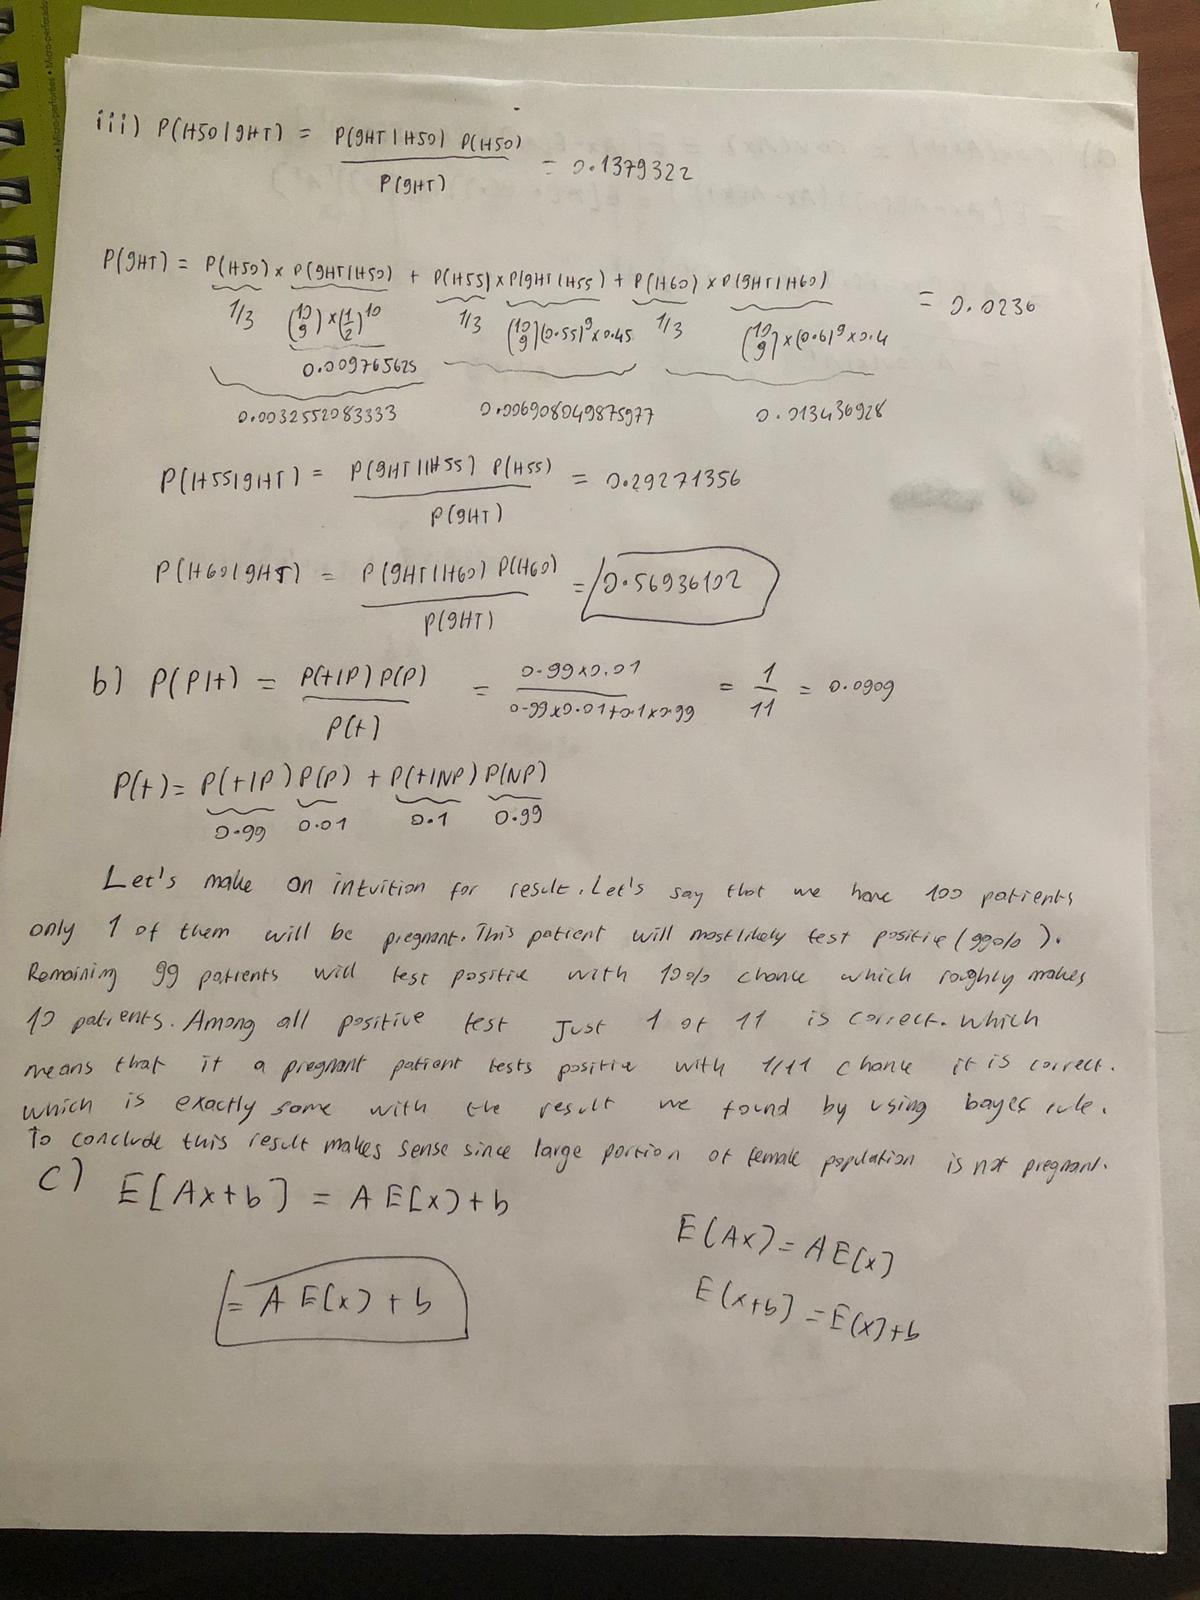 iii) P(H50|9HT) = P(9HT|H50) P(H50) / P(9HT) = 0.1379322
P(9HT) = P(H50) x P(9HT|H50) + P(H55) x P(9HT|H55) + P(H60) x P(9HT|H60) = 0.0236
1/3 (10 9) x (1/2)^10 1/3 (10 9)(0.55)^9 x 0.45 1/3 (10 9) x (0.6)^9 x 0.4
0.009765625
0.0032552083333 0.006908049875977 0.013436928
P(H55|9HT) = P(9HT|H55) P(H55) / P(9HT) = 0.29271356
P(H60|9HT) = P(9HT|H60) P(H60) / P(9HT) = 0.56936102
b) P(P|t) = P(t|P) P(P) / P(t) = 0.99x0.01 / 0.99x0.01+0.1x0.99 = 1/11 = 0.0909
P(t) = P(t|P) P(P) + P(t|NP) P(NP)
0.99 0.01 0.1 0.99
Let's make an intuition for result. Let's say that we have 100 patients
only 1 of them will be pregnant. This patient will most likely test positive (99%).
Remaining 99 patients will test positive with 10% chance which roughly makes
10 patients. Among all positive test just 1 of 11 is correct. which
means that if a pregnant patient tests positive with 1/11 chance it is correct.
which is exactly same with the result we found by using bayes rule.
To conclude this result makes sense since large portion of female population is not pregnant.
c) E[Ax+b] = A E[x] + b
E[Ax] = A E[x]
E[x+b] = E[x]+b
= A E[x] + b